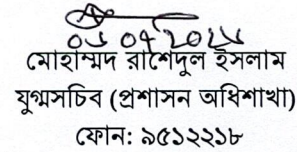 মোহাম্মদ রাশেদুল ইসলাম
যুগ্মসচিব (প্রশাসন অধিশাখা)
ফোন: ৯৫১২২১৮